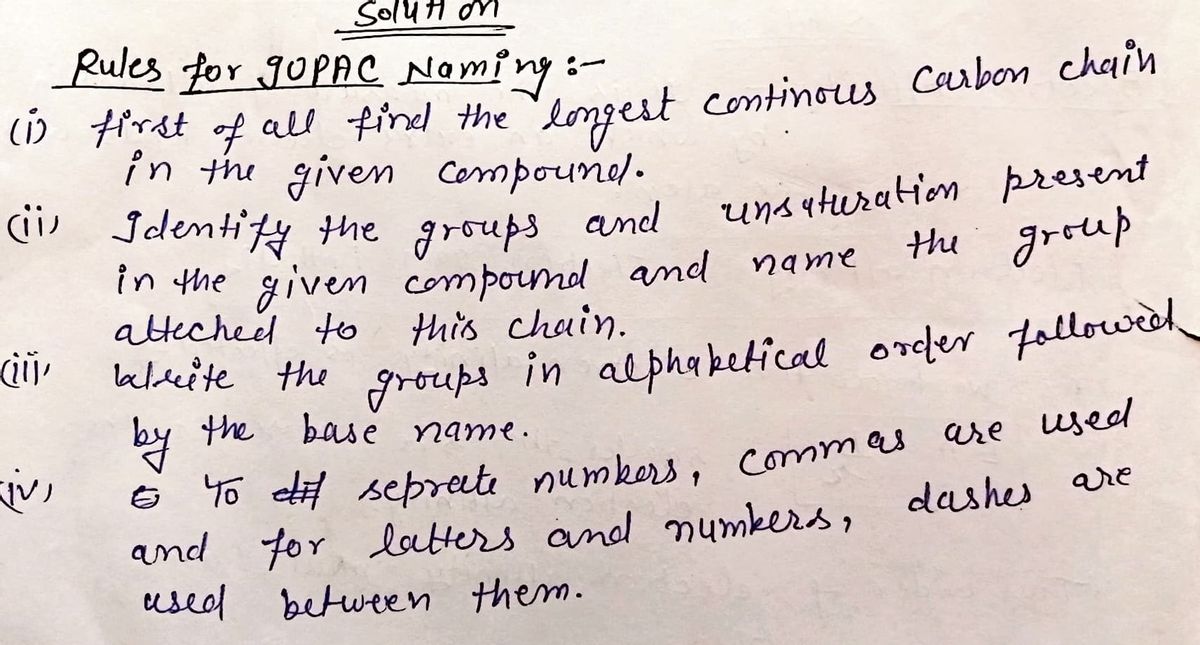 Solution
Rules for IUPAC Naming :-
(i) first of all find the longest continous Carbon chain
in the given compound.
(ii) Identify the groups and unsaturation present
in the given compound and name the group
atteched to this chain.
(iii) Write the groups in alphabetical order followed
by the base name.
(iv) To seprate numbers, commas are used
and for latters and numbers, dashes are
used between them.